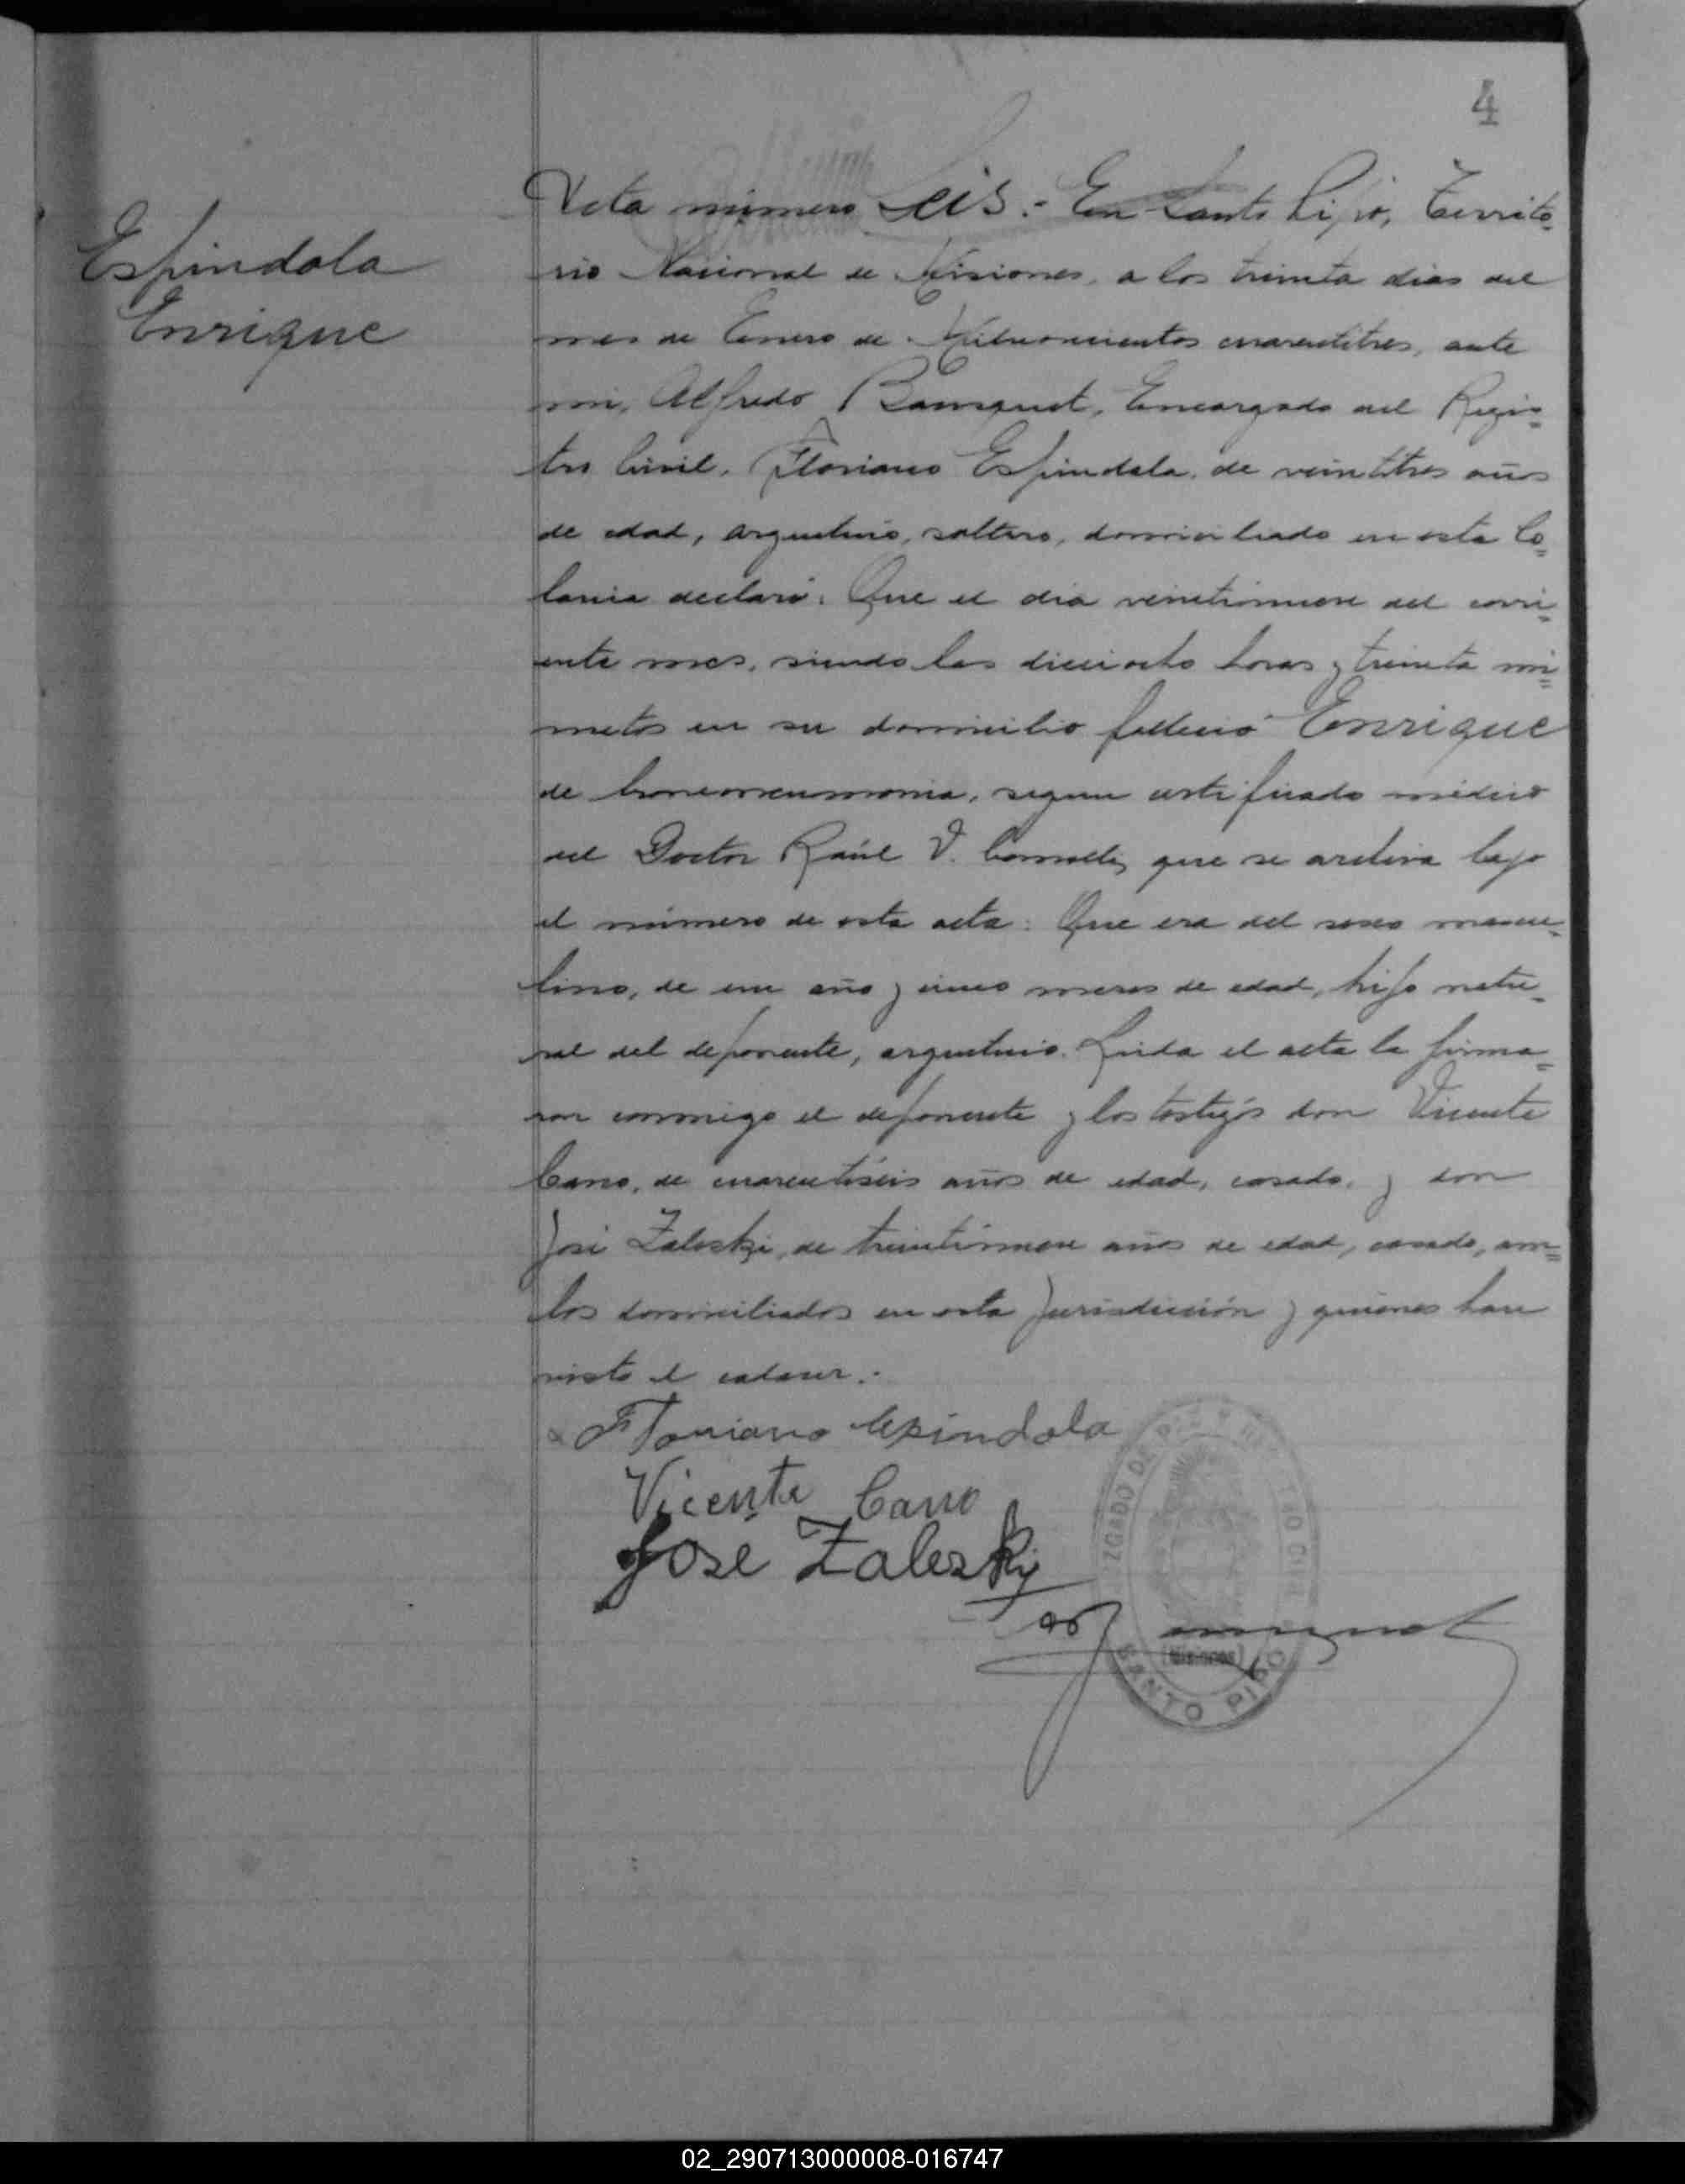 4
Espindola
Enrique
Acta número Seis.- En Santo Pipó, Territo-
rio Nacional de Misiones, a los treinta dias del
mes de Enero de Milnovecientos cuarentitres, ante
mi, Alfredo Bousquet, Encargado del Regis-
tro Civil, Floriano Espindola, de veintitres años
de edad, argentino, soltero, domiciliado en esta Co-
lonia declaró: Que el dia veintinueve del corri-
ente mes, siendo las dieciocho horas y treinta mi-
nutos en su domicilio falleció Enrique
de bronconeumonia, segun certificado médico
del Doctor Raúl V. que se archiva bajo
el número de esta acta: Que era del sexo mascu-
lino, de un año y cinco meses de edad, hijo natu-
ral del deponente, argentino. Leida el acta la firma-
ron conmigo el deponente y los testigos don Vicente
Cano, de cuarentiseis años de edad, casado, y don
José Zaleski, de treintinueve años de edad, casado, am-
bos domiciliados en esta Jurisdicción y quienes han
visto el cadaver.-
Floriano Espindola
Vicente Cano
José Zaleski
ZGADO DE PAZ Y REGISTRO CIVIL
(Misiones)
SANTO PIPO
02_290713000008-016747